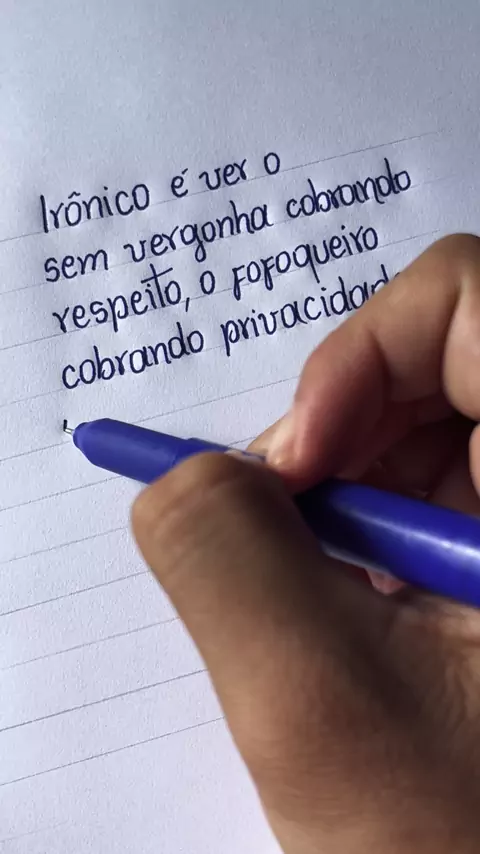 Irônico é ver o
sem vergonha cobrando
respeito, o fofoqueiro
cobrando privacidade